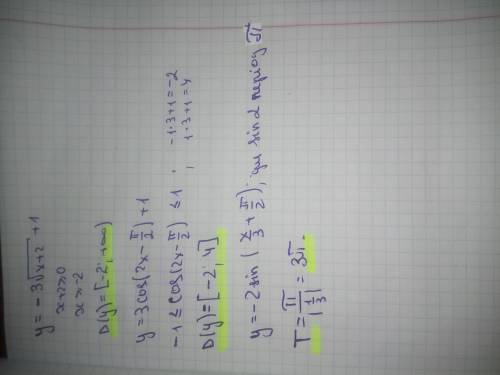 y = -3√(x+2) + 1
x+2≥0
x ≥ -2
D(y)=[-2; +∞)
y = 3cos(2x - π/2) + 1
-1 ≤ cos(2x - π/2) ≤ 1 ; -1·3+1=-2
; 1·3+1=4
D(y)=[-2; 4]
y = -2 sin(x/3 + π/2); для sin α період π
T = π/|1/3| = 3π.